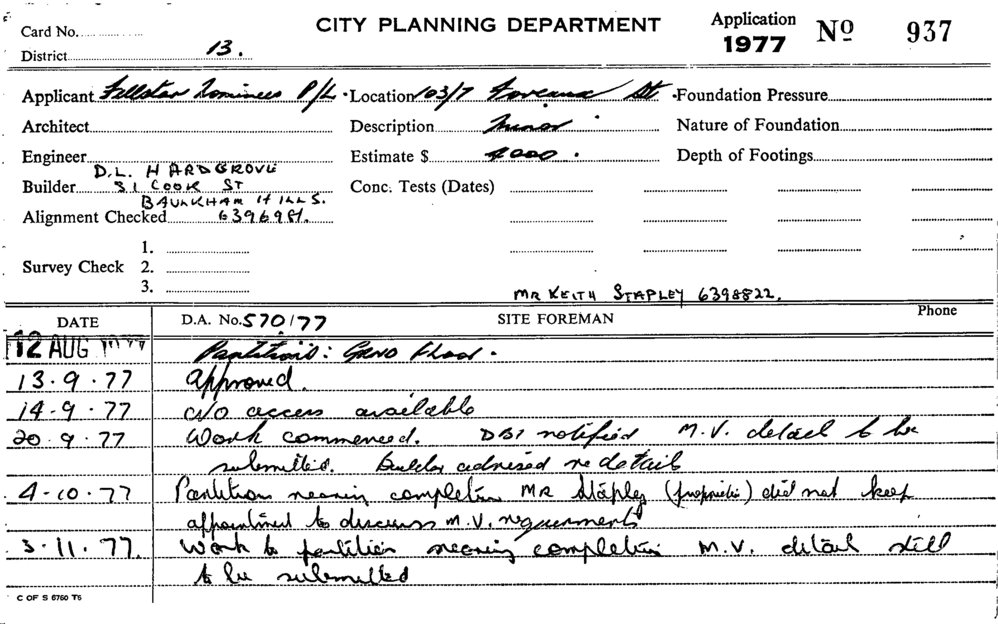 Card No.
CITY PLANNING DEPARTMENT
Application 1977 No 937
District 13.
Applicant Fellstar Nominees P/L. Location 103/7 Foveaux St. Foundation Pressure
Architect Description Minor Nature of Foundation
Engineer Estimate $ 4000. Depth of Footings
D.L. HARDGROVE
Builder 31 COOK ST Conc. Tests (Dates)
BAULKHAM HILLS.
Alignment Checked 6396981.
1.
Survey Check 2.
3.
MR KEITH STAPLEY 6398822.
DATE D.A. No. 570/77 SITE FOREMAN Phone
12 AUG 1977 Partitions: GRND Floor.
13.9.77 Approved.
14-9.77 c/o access available
20.9.77 Work commenced. DBI notified M.V. detail to be
submitted. Builder advised re details
4-10.77 Partition nearing completion MR Stapley (proprietor) did not keep
appointment to discuss M.V. requirements
3.11.77. Work to partition nearing completion M.V. detail still
to be submitted
C OF S 6760 T5